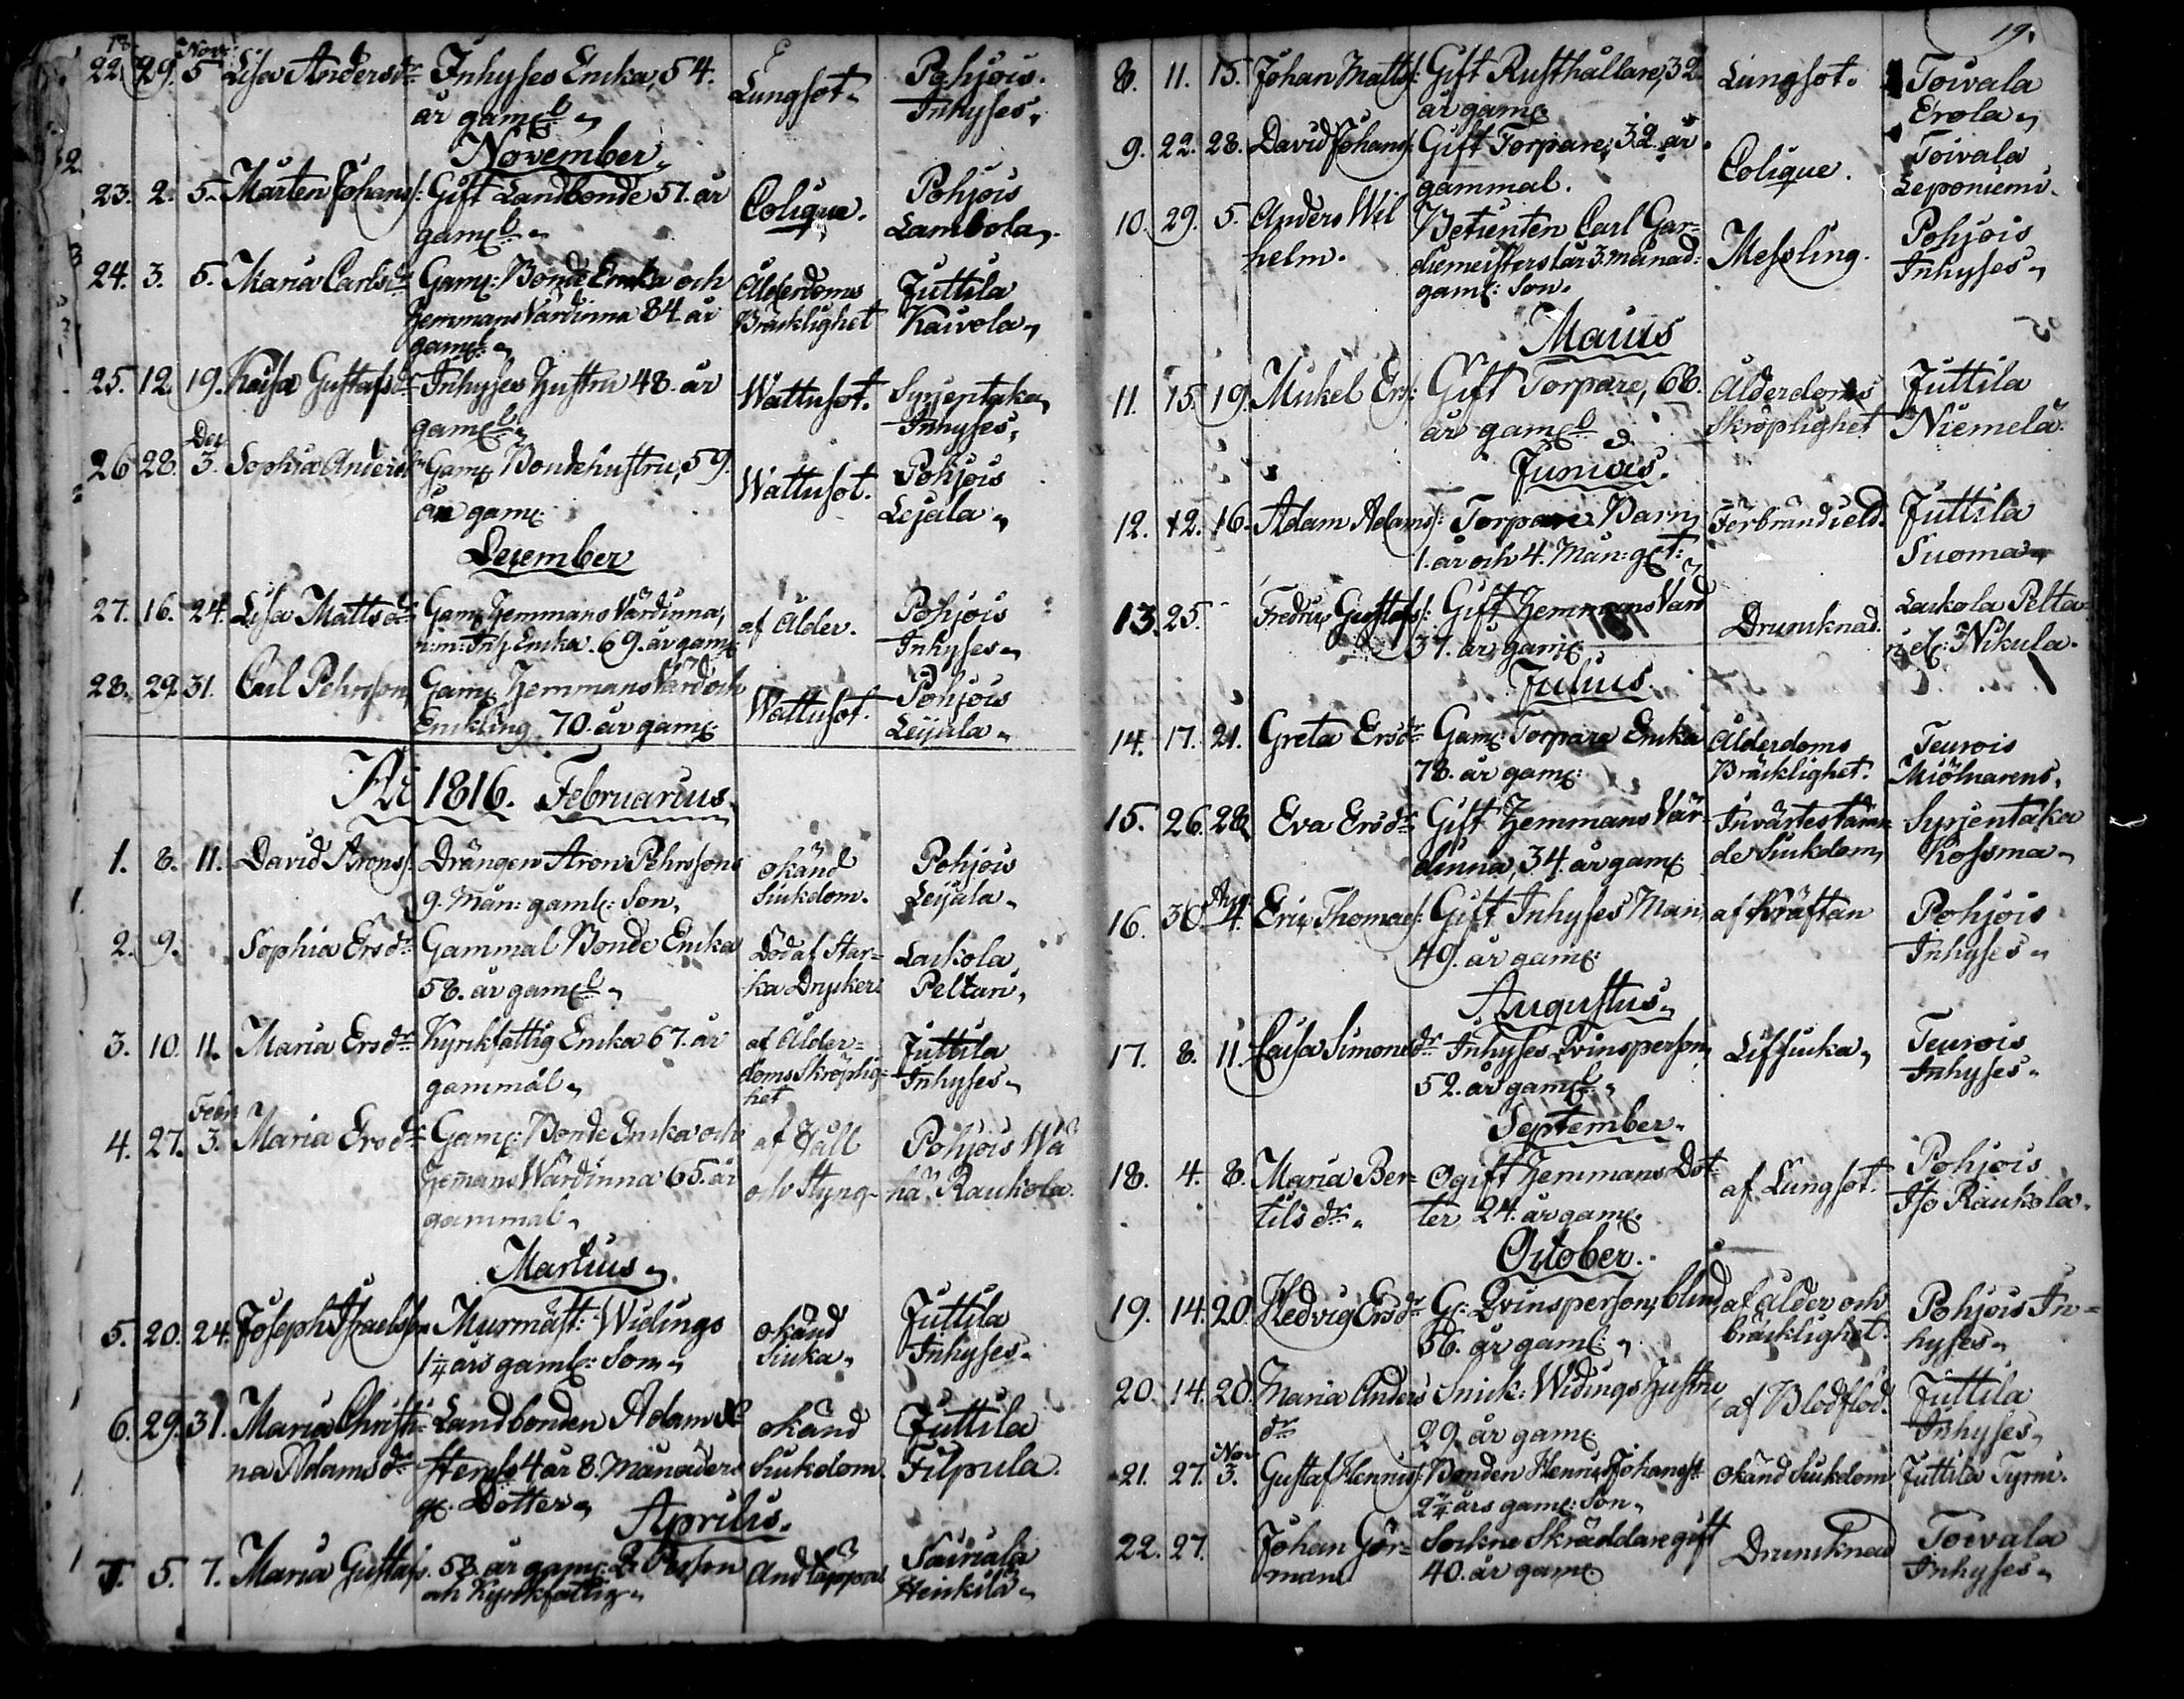 22. 29. Nov: 5 Lisa Andersdr Inhyses Enka, 54. Lungsot. Pohjois.
år gamal Inhyses.
November.
23. 2. 5. Mårten Johans: Gift Landbonde 51. år Colique. Pohjois
gaml Lambola.
24. 3. 5. Maria Carlsdr Gaml: Bonde Enka och Ålderdoms Juttila
Hemmans Värdinna 84. år Bräcklighet Kaivola,
gaml.
25. 12. 19. Kaisa Gustafsdr Inhyses Hustru 48. år Wattusot. Syrjentaka,
gaml Inhyses,
26 28. Dec 3. Sophia Anders dr Gaml Bondehustru, 59. Wattusot. Pohjois
år gaml Lejala
December
27. 16. 24. Lisa Mattsdr Gaml Hemmans Värdinna, af Ålder. Pohjois
n: m: Inh Enka. 69. år gaml Inhyses
28. 29. 31. Carl Pehrsson, Gaml Hemmans Värd och Wattusot. Pohjois
Enkling 70. år gaml: Leijala
1816. Februarius.
1. 8. 11. David Arons: Drängen Aron Pehrssons okänd Pohjois
9. Mån: gaml: Son, Siukdom. Leijala
2. 9. Sophia Ersdr Gammal Bonde Enka Död af Star= Laukola
58. år gaml ka Drycker. Peltari,
3. 10. 11. Maria Ersdr Kyrkfattig Enka 67. år af Ålder= Juttila
gammal doms Skröplig= Inhyses
het
4. 27. Febr 3. Maria Ersdr Gaml: Bonde Enka och af Håll Pohjois Wä
Hemans Wärdinna 65. år och Styng hä Raukola.
gammal
Martius
5. 20. 24. Joseph Israelsson Murmäst: Widings okänd Juttila
1¼ års gaml: Son Siuka Inhyses
6. 29. 31. Maria Christi= Landbonden Adam okänd Juttila
na Adamsdr 4 år 8. Månaders Siukdom. Filpula.
gl. Dotter
Aprilis.
7. 5. 7. Maria Gustafs. 58. år gaml: Q. Person Andtäppa Sairiala
och Kyrkfattig Heinkilä
19.
8. 11. 15. Johan Matts: Gift Rusthållare, 32 Lungsot. Toivala
år gaml Erola
9. 22. 28. David Johans: Gift Torpare, 32 år Colique. Toivala
gammal. Leponiemi.
10. 29. 5. Anders Wil Betienten Carl Gar= Messling. Pohjois
helm. diemeisters 1 år 3. månad: Inhyses
gaml: Son.
Maius
11. 15. 19. Mickel Ers: Gift Torpare, 68. Ålderdoms Juttila
år gaml Skröplighet Niemelä
Junius.
12. 12. 16. Adam Adams: Torpare Barn, Förbränd i eld. Juttila
1. år och 4. Mån: glt: Suoma
13. 25. Fredric Gustafs: Gift Hemmans Värd Drunknad. Laukola Pelta
37. år gaml: ri el: Nikula.
Julius.
14. 17. 21. Greta Ersdr Gaml: Torpare Enka Ålderdoms Teurois
78. år gaml: Bräcklighet. Miölnarens.
15. 26. 28 Eva Ersdr Gift Hemmans Vär= Invärtes täran Syrjentaka
dinna, 34. år gaml de Siukdom, Kossma
16. 30. Aug: 4. Eric Thomas: Gift Inhyses Man, af Kräftan Pohjois
49. år gaml: Inhyses
Augustus
17. 8. 11. Caisa Simonsdr Inhyses Qvinsperson, Lifsiuka, Teurois
52. år gaml Inhyses
September.
18. 4. 8. Maria Ber= Ogift Hemmans Dot= af Lungsot. Pohjois
tilsdr. ter 24. år gaml. Iso Raukola.
October.
19. 14. 20. Hedvig Ersdr G: Qvinsperson, blind, af ålder och Pohjois In=
56. år gaml: bräcklighet. hyses
20. 14. 20. Maria Anders Snick: Widings Hustru, af Blodflod. Juttila
dr 29. år gaml Inhyses
21. 27. Nov 3. Gustaf Henrics: Bonden Henric Johans: okänd Siukdom Juttila Tyrni.
2¼ års gaml: Son
22. 27. Johan Gör= Sockne Skräddare gift Drunknad Toivala
man 40. år gaml Inhyses